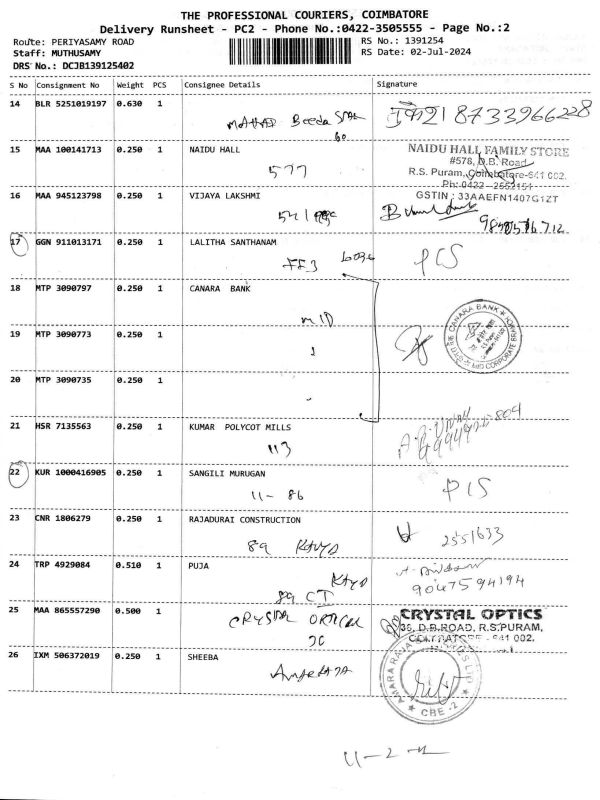 THE PROFESSIONAL COURIERS, COIMBATORE
Delivery Runsheet - PC2 - Phone No.:0422-3505555 - Page No.:2
Route: PERIYASAMY ROAD RS No.: 1391254
Staff: MUTHUSAMY RS Date: 02-Jul-2024
DRS No.: DCJB139125402
S No Consignment No Weight PCS Consignee Details Signature
14 BLR 5251019197 0.630 1
Beeda Stall 8733966228
60
15 MAA 100141713 0.250 1 NAIDU HALL NAIDU HALL FAMILY STORE
577 #578, D.B. Road
R.S. Puram, Coimbatore-641 002.
Ph: 0422 - 2552151
16 MAA 945123798 0.250 1 VIJAYA LAKSHMI GSTIN : 33AAEFN1407G1ZT
17 GGN 911013171 0.250 1 LALITHA SANTHANAM
FF3 PCS
18 MTP 3090797 0.250 1 CANARA BANK
MID CANARA BANK
MID CORPORATE BRANCH
19 MTP 3090773 0.250 1
20 MTP 3090735 0.250 1
21 HSR 7135563 0.250 1 KUMAR POLYCOT MILLS
113
22 KUR 1000416905 0.250 1 SANGILI MURUGAN
11-86 PCS
23 CNR 1806279 0.250 1 RAJADURAI CONSTRUCTION
89 2551633
24 TRP 4929084 0.510 1 PUJA
89 CT 9047594194
25 MAA 865557290 0.500 1 CRYSTAL OPTICAL CRYSTAL OPTICS
36, D.B.ROAD, R.S.PURAM,
COIMBATORE - 641 002.
26 IXM 506372019 0.250 1 SHEEBA
AMARA RAJA
CBE -2